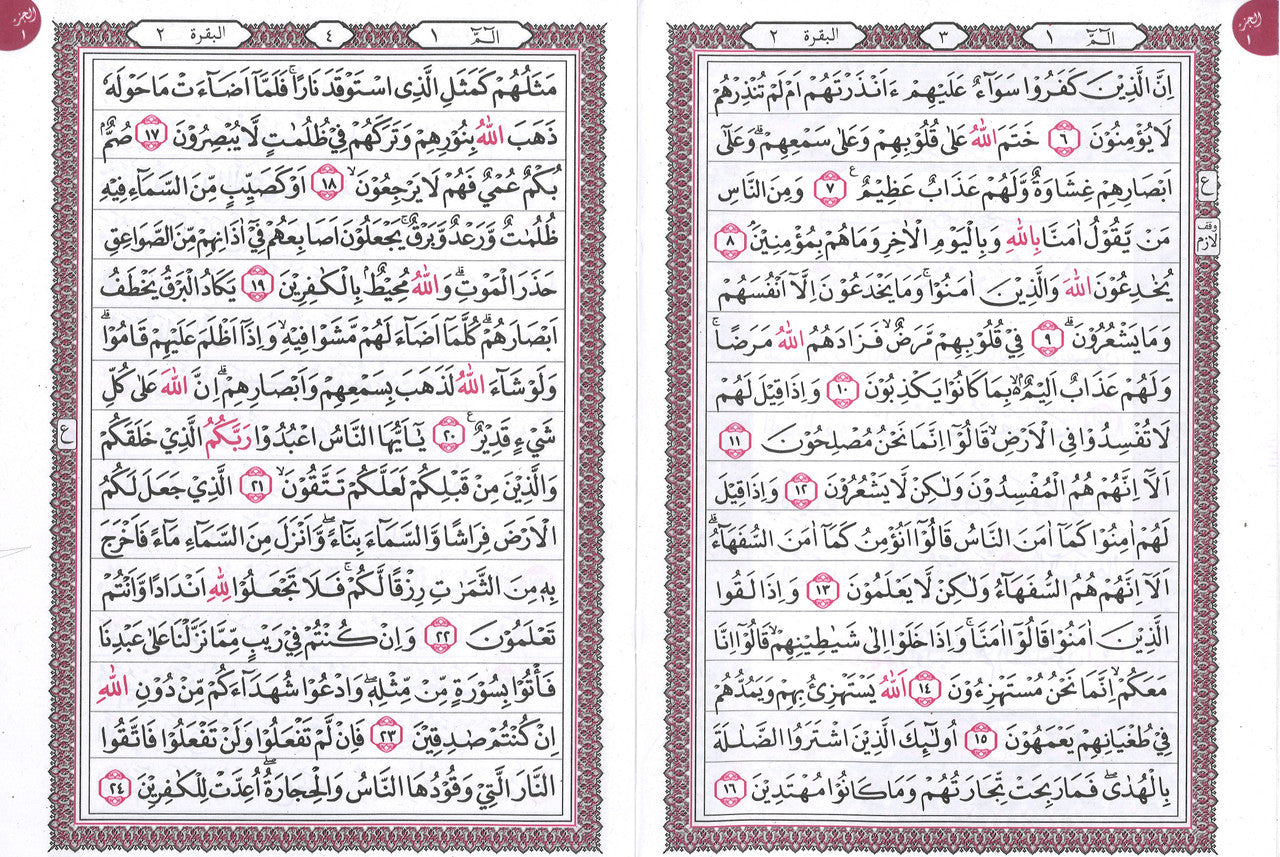 الجزء ١
الٓـمّٓ ١
٣
البقرة ٢
اِنَّ الَّذِيْنَ كَفَرُوْا سَوَآءٌ عَلَيْهِمْ ءَاَنْذَرْتَهُمْ اَمْ لَمْ تُنْذِرْهُمْ
لَا يُؤْمِنُوْنَ ٦ خَتَمَ اللّٰهُ عَلٰى قُلُوْبِهِمْ وَعَلٰى سَمْعِهِمْ ۗ وَعَلٰٓى
اَبْصَارِهِمْ غِشَاوَةٌ وَّلَهُمْ عَذَابٌ عَظِيْمٌ ࣖ ٧ وَمِنَ النَّاسِ
ع
مَنْ يَّقُوْلُ اٰمَنَّا بِاللّٰهِ وَبِالْيَوْمِ الْاٰخِرِ وَمَا هُمْ بِمُؤْمِنِيْنَ ۘ ٨
وقف لازم
يُخٰدِعُوْنَ اللّٰهَ وَالَّذِيْنَ اٰمَنُوْا ۚ وَمَا يَخْدَعُوْنَ اِلَّآ اَنْفُسَهُمْ
وَمَا يَشْعُرُوْنَ ۗ ٩ فِيْ قُلُوْبِهِمْ مَّرَضٌ ۙ فَزَادَهُمُ اللّٰهُ مَرَضًا ۚ
وَلَهُمْ عَذَابٌ اَلِيْمٌ ۢ ۙ بِمَا كَانُوْا يَكْذِبُوْنَ ١٠ وَاِذَا قِيْلَ لَهُمْ
لَا تُفْسِدُوْا فِى الْاَرْضِ ۙ قَالُوْٓا اِنَّمَا نَحْنُ مُصْلِحُوْنَ ١١
اَلَآ اِنَّهُمْ هُمُ الْمُفْسِدُوْنَ وَلٰكِنْ لَّا يَشْعُرُوْنَ ١٢ وَاِذَا قِيْلَ
لَهُمْ اٰمِنُوْا كَمَآ اٰمَنَ النَّاسُ قَالُوْٓا اَنُؤْمِنُ كَمَآ اٰمَنَ السُّفَهَآءُ ۗ
اَلَآ اِنَّهُمْ هُمُ السُّفَهَآءُ وَلٰكِنْ لَّا يَعْلَمُوْنَ ١٣ وَاِذَا لَقُوا
الَّذِيْنَ اٰمَنُوْا قَالُوْٓا اٰمَنَّا ۚ وَاِذَا خَلَوْا اِلٰى شَيٰطِيْنِهِمْ ۙ قَالُوْٓا اِنَّا
مَعَكُمْ ۙ اِنَّمَا نَحْنُ مُسْتَهْزِءُوْنَ ١٤ اَللّٰهُ يَسْتَهْزِئُ بِهِمْ وَيَمُدُّهُمْ
فِيْ طُغْيَانِهِمْ يَعْمَهُوْنَ ١٥ اُولٰٓئِكَ الَّذِيْنَ اشْتَرَوُا الضَّلٰلَةَ
بِالْهُدٰى ۖ فَمَا رَبِحَتْ تِّجَارَتُهُمْ وَمَا كَانُوْا مُهْتَدِيْنَ ١٦
الجزء ١
الٓـمّٓ ١
٤
البقرة ٢
مَثَلُهُمْ كَمَثَلِ الَّذِى اسْتَوْقَدَ نَارًا ۚ فَلَمَّآ اَضَآءَتْ مَا حَوْلَهٗ
ذَهَبَ اللّٰهُ بِنُوْرِهِمْ وَتَرَكَهُمْ فِيْ ظُلُمٰتٍ لَّا يُبْصِرُوْنَ ١٧ صُمٌّ ۢ
بُكْمٌ عُمْيٌ فَهُمْ لَا يَرْجِعُوْنَ ۙ ١٨ اَوْ كَصَيِّبٍ مِّنَ السَّمَآءِ فِيْهِ
ظُلُمٰتٌ وَّرَعْدٌ وَّبَرْقٌ ۚ يَجْعَلُوْنَ اَصَابِعَهُمْ فِيْٓ اٰذَانِهِمْ مِّنَ الصَّوَاعِقِ
حَذَرَ الْمَوْتِ ۗ وَاللّٰهُ مُحِيْطٌ ۢ بِالْكٰفِرِيْنَ ١٩ يَكَادُ الْبَرْقُ يَخْطَفُ
اَبْصَارَهُمْ ۗ كُلَّمَآ اَضَآءَ لَهُمْ مَّشَوْا فِيْهِ ۙ وَاِذَآ اَظْلَمَ عَلَيْهِمْ قَامُوْا ۗ
وَلَوْ شَآءَ اللّٰهُ لَذَهَبَ بِسَمْعِهِمْ وَاَبْصَارِهِمْ ۗ اِنَّ اللّٰهَ عَلٰى كُلِّ
شَيْءٍ قَدِيْرٌ ࣖ ٢٠ يٰٓاَيُّهَا النَّاسُ اعْبُدُوْا رَبَّكُمُ الَّذِيْ خَلَقَكُمْ
ع
وَالَّذِيْنَ مِنْ قَبْلِكُمْ لَعَلَّكُمْ تَتَّقُوْنَ ۙ ٢١ الَّذِيْ جَعَلَ لَكُمُ
الْاَرْضَ فِرَاشًا وَّالسَّمَآءَ بِنَآءً ۖ وَّاَنْزَلَ مِنَ السَّمَآءِ مَآءً فَاَخْرَجَ
بِهٖ مِنَ الثَّمَرٰتِ رِزْقًا لَّكُمْ ۚ فَلَا تَجْعَلُوْا لِلّٰهِ اَنْدَادًا وَّاَنْتُمْ
تَعْلَمُوْنَ ٢٢ وَاِنْ كُنْتُمْ فِيْ رَيْبٍ مِّمَّا نَزَّلْنَا عَلٰى عَبْدِنَا
فَأْتُوْا بِسُوْرَةٍ مِّنْ مِّثْلِهٖ ۖ وَادْعُوْا شُهَدَآءَكُمْ مِّنْ دُوْنِ اللّٰهِ
اِنْ كُنْتُمْ صٰدِقِيْنَ ٢٣ فَاِنْ لَّمْ تَفْعَلُوْا وَلَنْ تَفْعَلُوْا فَاتَّقُوا
النَّارَ الَّتِيْ وَقُوْدُهَا النَّاسُ وَالْحِجَارَةُ ۖ اُعِدَّتْ لِلْكٰفِرِيْنَ ٢٤